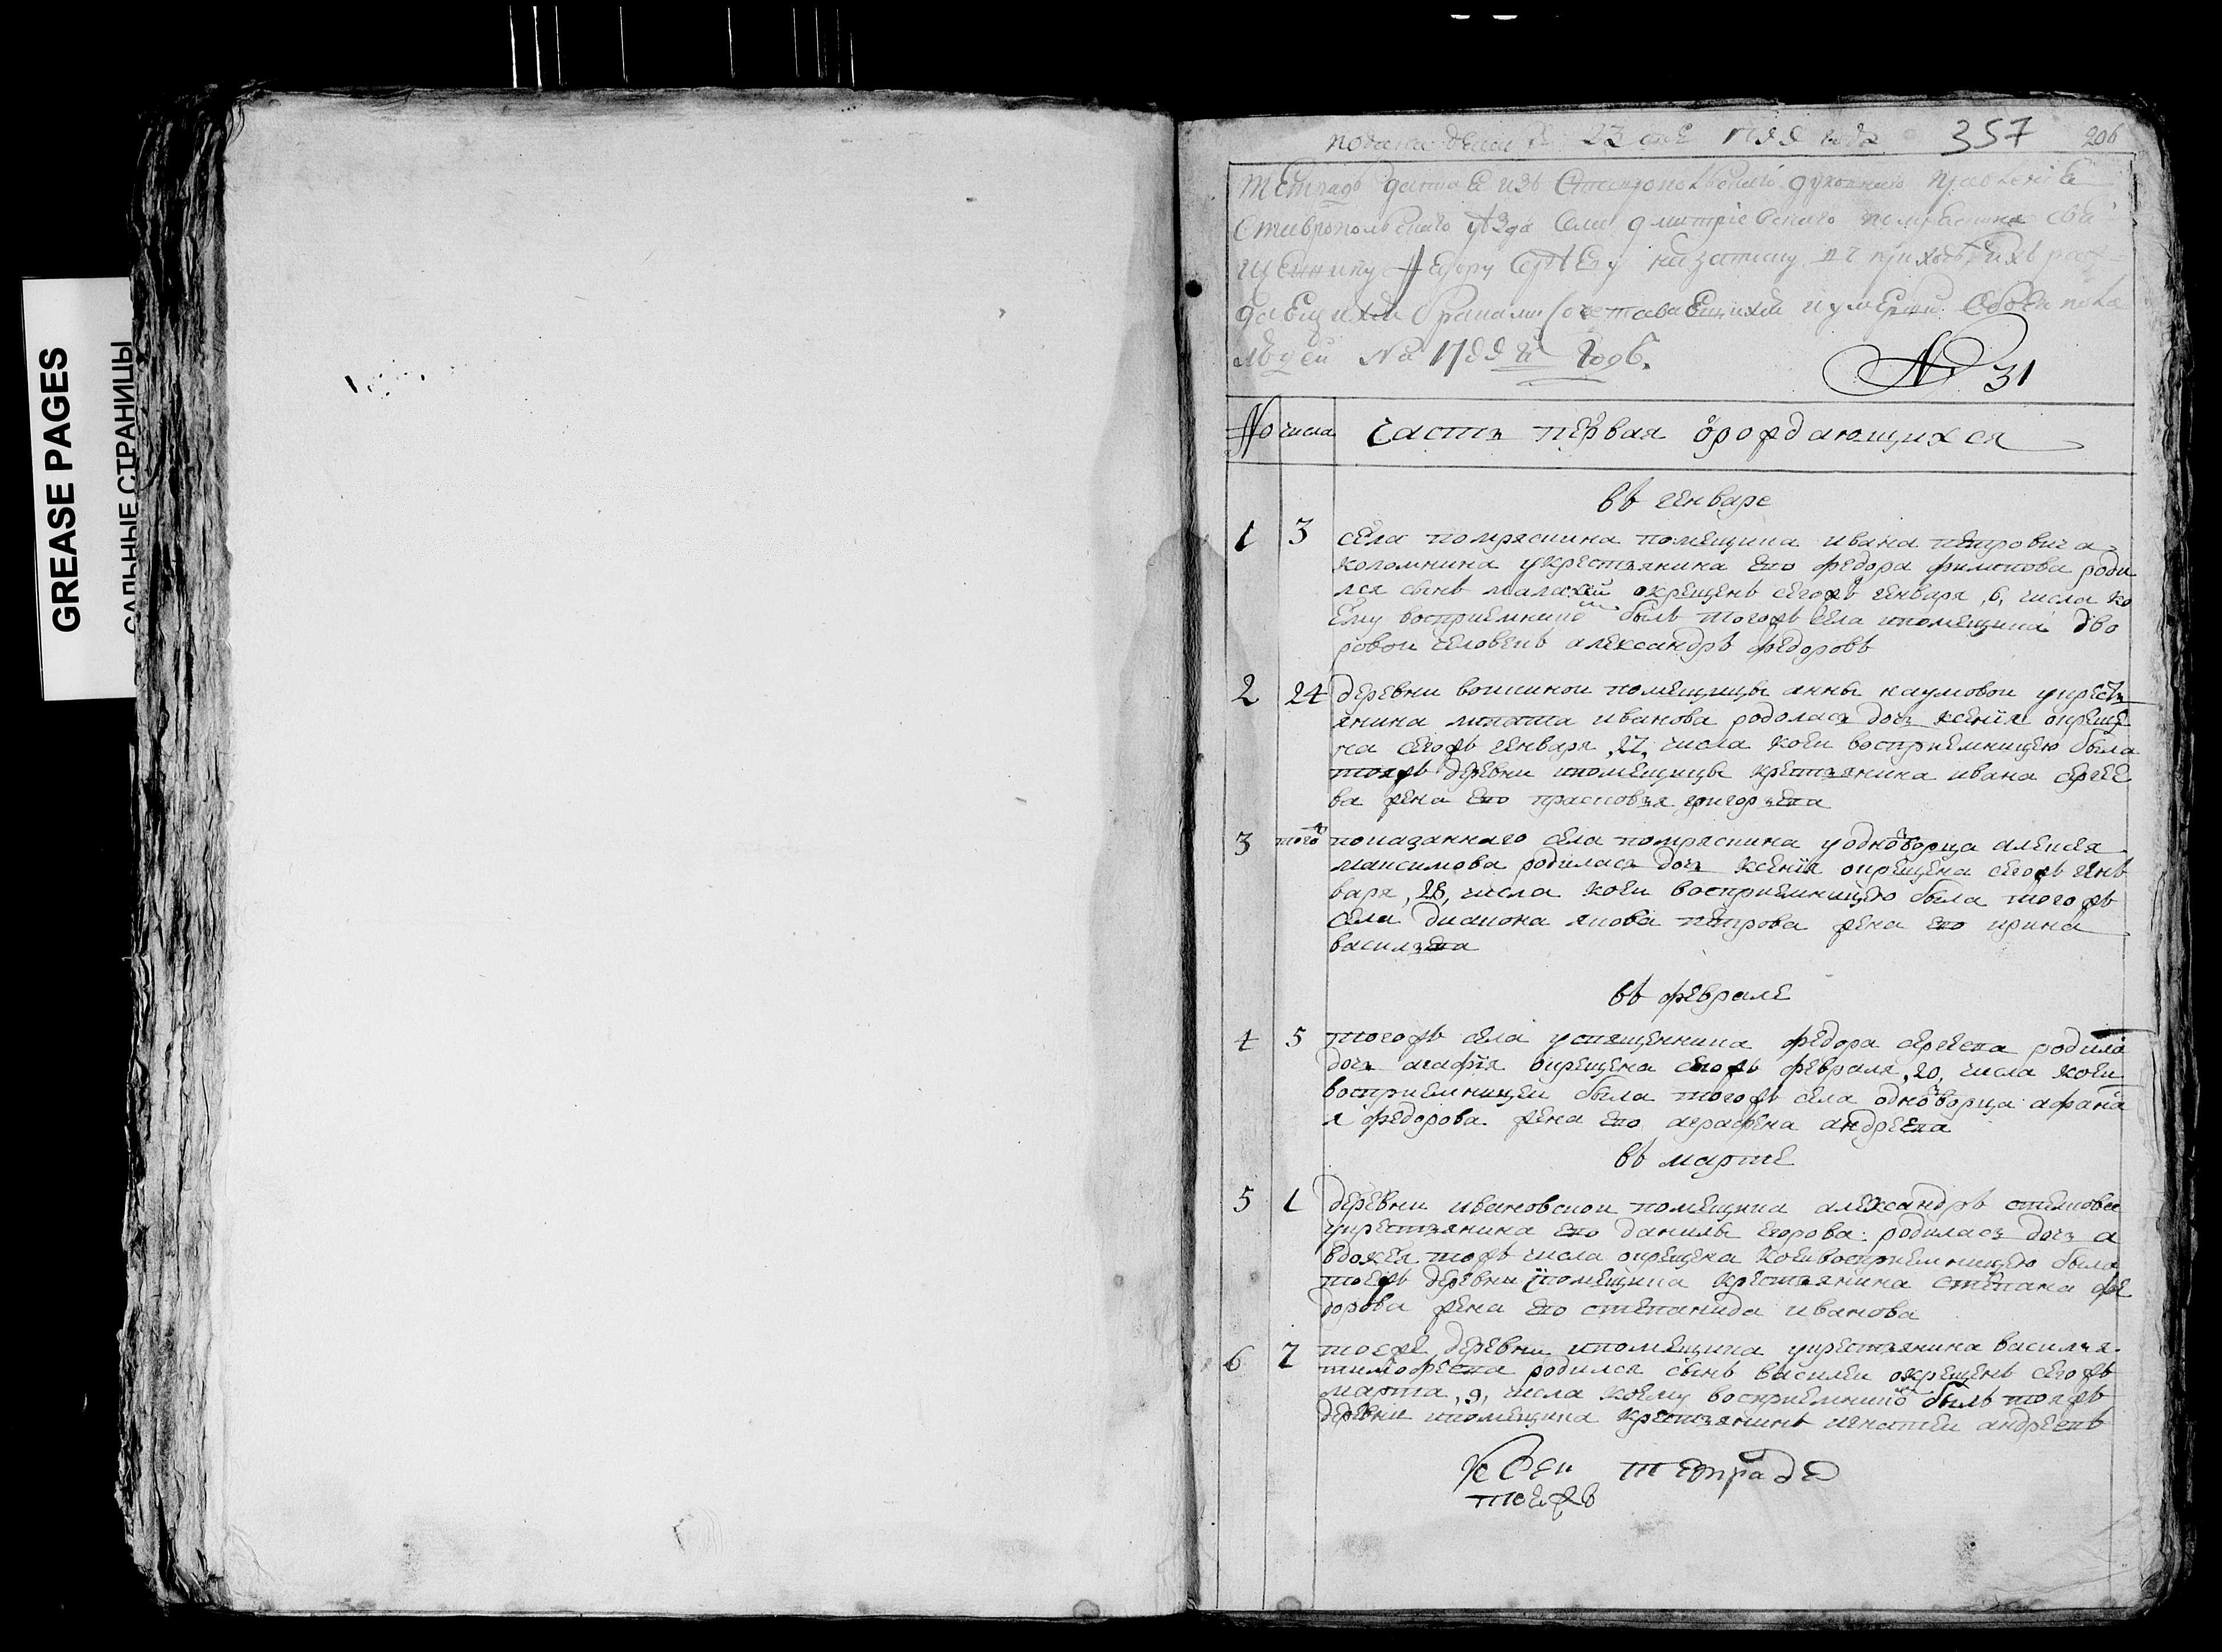 GREASE PAGES
САЛЬНЫЕ СТРАНИЦЫ
подана 23 дня 1788 года 357 206
Тетрадь данная изъ Ставропольскаго духовнаго правления
Ставропольского уезда села Дмитриевского помряскина свя
щеннику Федору Сергееву на записку въ приходе ихъ рож
дающихся браками сочетавающихся и умерших
людей На 1788 й годъ.
№ 31
№ числа часть первая о рождающихся
въ генваре
1 3 села помряскина помещика ивана петровича
коломнина у крестьянина ево федора филипова роди
лся сынъ малахий окрещенъ сегожъ генваря ,6, числа ко
ему восприемникомъ былъ тогожъ села и помещика дво
ровои человекъ александръ федоровъ
2 24 деревни помещицы анны наумовои у крестъ
янина ипата иванова родолась дочь ксения окреще
на сегожъ генваря ,27, числа коеи восприемницею была
тояжъ деревни и помещицы крестьянина ивана сергее
ва жена ево прасковья григорьева
3 того показаннаго села помряскина у однодворца алексея
максимова родилась дочь ксения окрещена сегожъ ген
варя ,28, числа коеи восприемницею была тогожъ
села диакона якова петрова жена ево ирина
васильева
въ феврале
4 5 тогожъ села у священника федора сергеева родила
дочь агафия окрещена сегожъ февраля ,20, числа коеи
восприемницеи была тогожъ села однодворца афана
я федорова жена ево аграфена андреева
въ марте
5 1 деревни ивановскои помещика александръ
у крестьянина ево данилы егорова родилась дочь а
вдокея тогожъ числа окрещена коеи восприемницею была
тоежъ деревни и помещика крестьянина степана фе
дорова жена ево степанида иванова
6 7 тоеже деревни и помещика у крестьянина василья
тимофеева родился сынъ василеи окрещенъ сегожъ
марта ,9, числа коему восприемникомъ былъ тояжъ
деревни и помещика крестьянинъ игнатеи андреевъ
К сеи тетраде
тоежъ